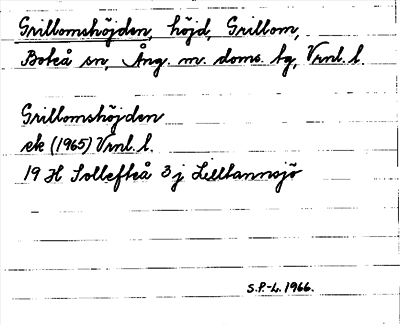 Grillomshöjden, höjd, Grillom,
Boteå sn, Ång. m. doms. tg, Vrnl. l.
Grillomshöjden
ek (1965) Vrnl. l.
19 H Sollefteå 3 j Lilltannsjö
S.P.-L. 1966.